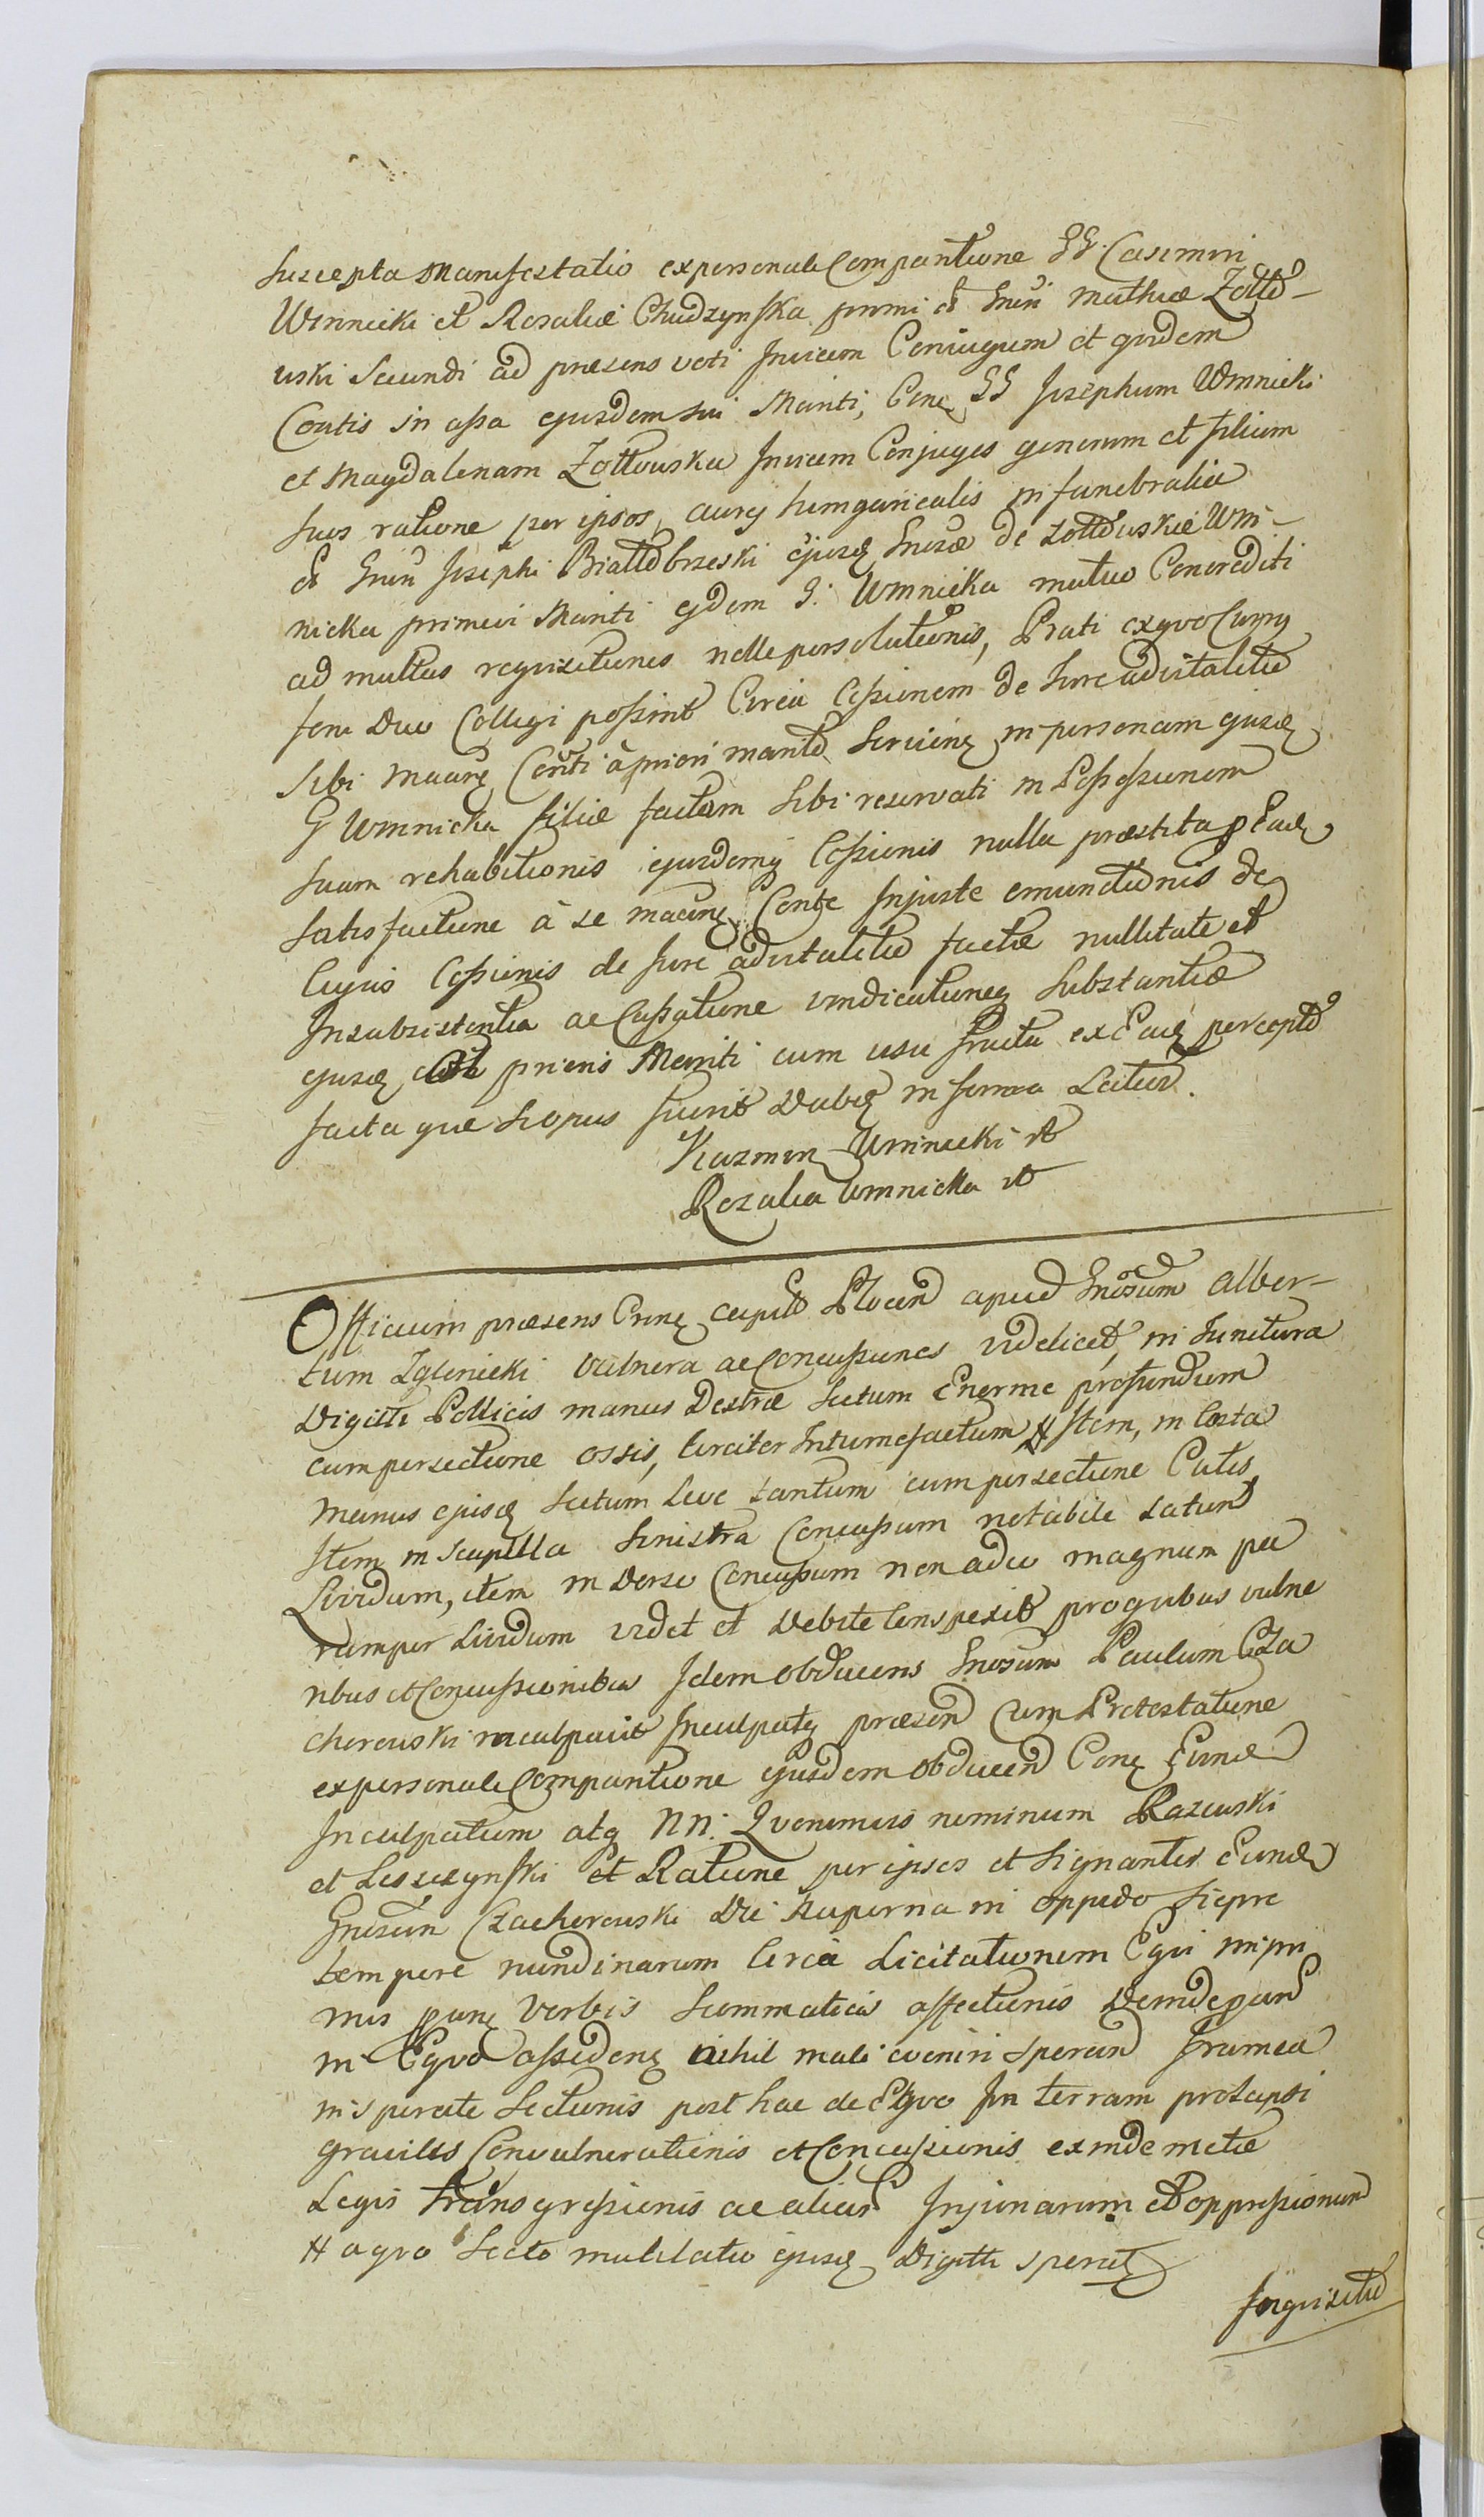 Suscepta Manifestatio ex personali Comparitione GG. Casimiri
Winnicki et Rosaliæ Chudzynska primi et Gnri Mathiæ Zołto-
wski Secundi ad præsens voti Invicem Coniugum et quidem
Contis in assa ejusdem sui Mariti, Cone GG Josephum Winnicki
et Magdalenam Zołtowska Invicem Conjuges generum et filium
suos ratione per ipsos aurej hungaricalis in funebralia
Gnri Josephi Białłobrzeski ejusd Gnrosæ de Zołtowskie Win-
nicka primevi Mariti ejdem G. Winnicka mutuo Concrediti
ad multas requisitiones nolle persolutionis, Prati ex quo Currus
feni Duo Colligi possint Circa Cessionem de Jure advitalitio
sibi Conti à priori marito in personam ejusd
G Winnicka filiæ factam sibi reservati in Possessionem
suam rehabitionis ejusdemq Cessionis nulla præstita p Ead
satisfactione à se Conte Injuste emunctionis de
Cujus Cessionis de Jure advitalitio factæ nullitate et
Insubsistentia ac Cassatione vindicationeq substantiæ
ejusd prioris Mariti cum usu fructu ex Ead percepto
facta quæ si opus fuerit Dabit in forma Latiori.
Kazmirz Winnicki
Rozalia Winnicka
Officium præsens Crinе Plocen apud Gnosum Alber-
tum Zglenicki vulnera ac Concussiones videlicet, in Junctura
Digitti Pollicis manus Dextræ sectum Enorme profundum
cum persectione ossis, Circiter Intumefactum # Item, in Costa
Manus ejusd sectum Leve tantum cum persectione Cutis
Item in Scapulla sinistra Concussum notabile Latum
Lividum, item in Dorso Concussum non adeo magnum pa
rumper Lividum vidit et Debite Conspexit pro quibus vulne
ribus et Concussionibus Idem obducens Gnosum Paulum Cza
chorowski inculpavit Inculpatq præsen Cum Protestatione
ex personali Comparitione ejusdem obducen Cone Eund
Inculpatum atq NN. Qvonimus nominum Razewski
et Leszczynski et Ratione per ipsos et signanter Eund
Gnosum Czachorowski Die hesterna in oppido Sieprc
tempore nundinarum Circa Licitationem Equi in pri
mis Verbis summaticis affectionis Deinde
in Equo assiden nihil mali eveniri speran Framea
insperate sectionis post hac de Equo In terram prolapsi
gravius Convulnerationis et Concussionis exinde metæ
Legis Transgressionis ac aliar Injuriarum et oppressionum
# a quo secto mutilatio ejusd Digitti speratur
Inquisitio